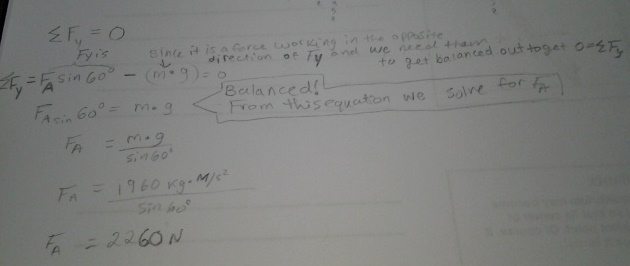 ΣFy = 0
Fy is since it is a force working in the opposite direction of Fy and we need them to get balanced out to get 0=ΣFy
ΣFy = FA sin 60° - (m•g) = 0
FA sin 60° = m•g
Balanced!
From this equation we solve for FA
FA = m•g / sin 60°
FA = 1960 kg•M/s² / sin 60°
FA = 2260 N